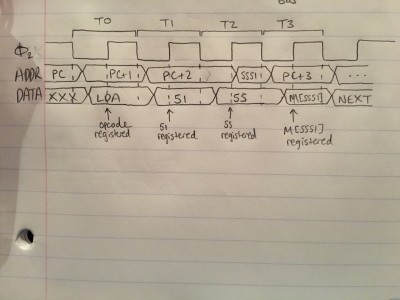 Bus
T0 T1 T2 T3
Φ2
ADDR PC PC+1 PC+2 SSS1 PC+3 ...
DATA XXX LDA S1 SS M[SSS1] NEXT
opcode registered
S1 registered
SS registered
M[SSS1] registered